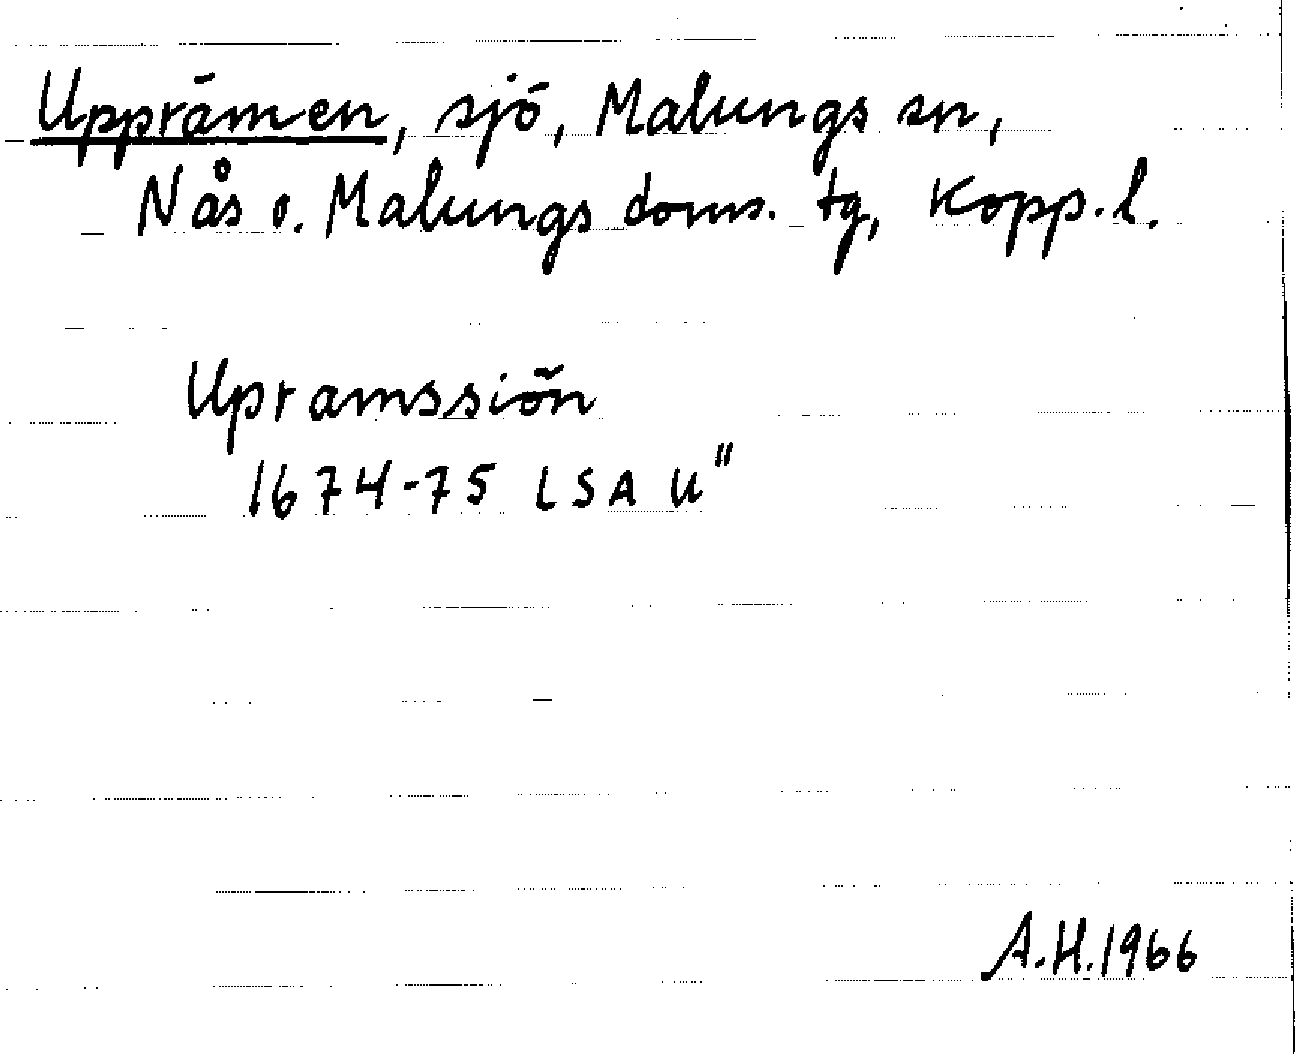 Upprämen, sjö, Malungs sn,
Nås o. Malungs doms. tg, Kopp.l.
Upramssiön
1674-75 LSA U"
A.H.1966